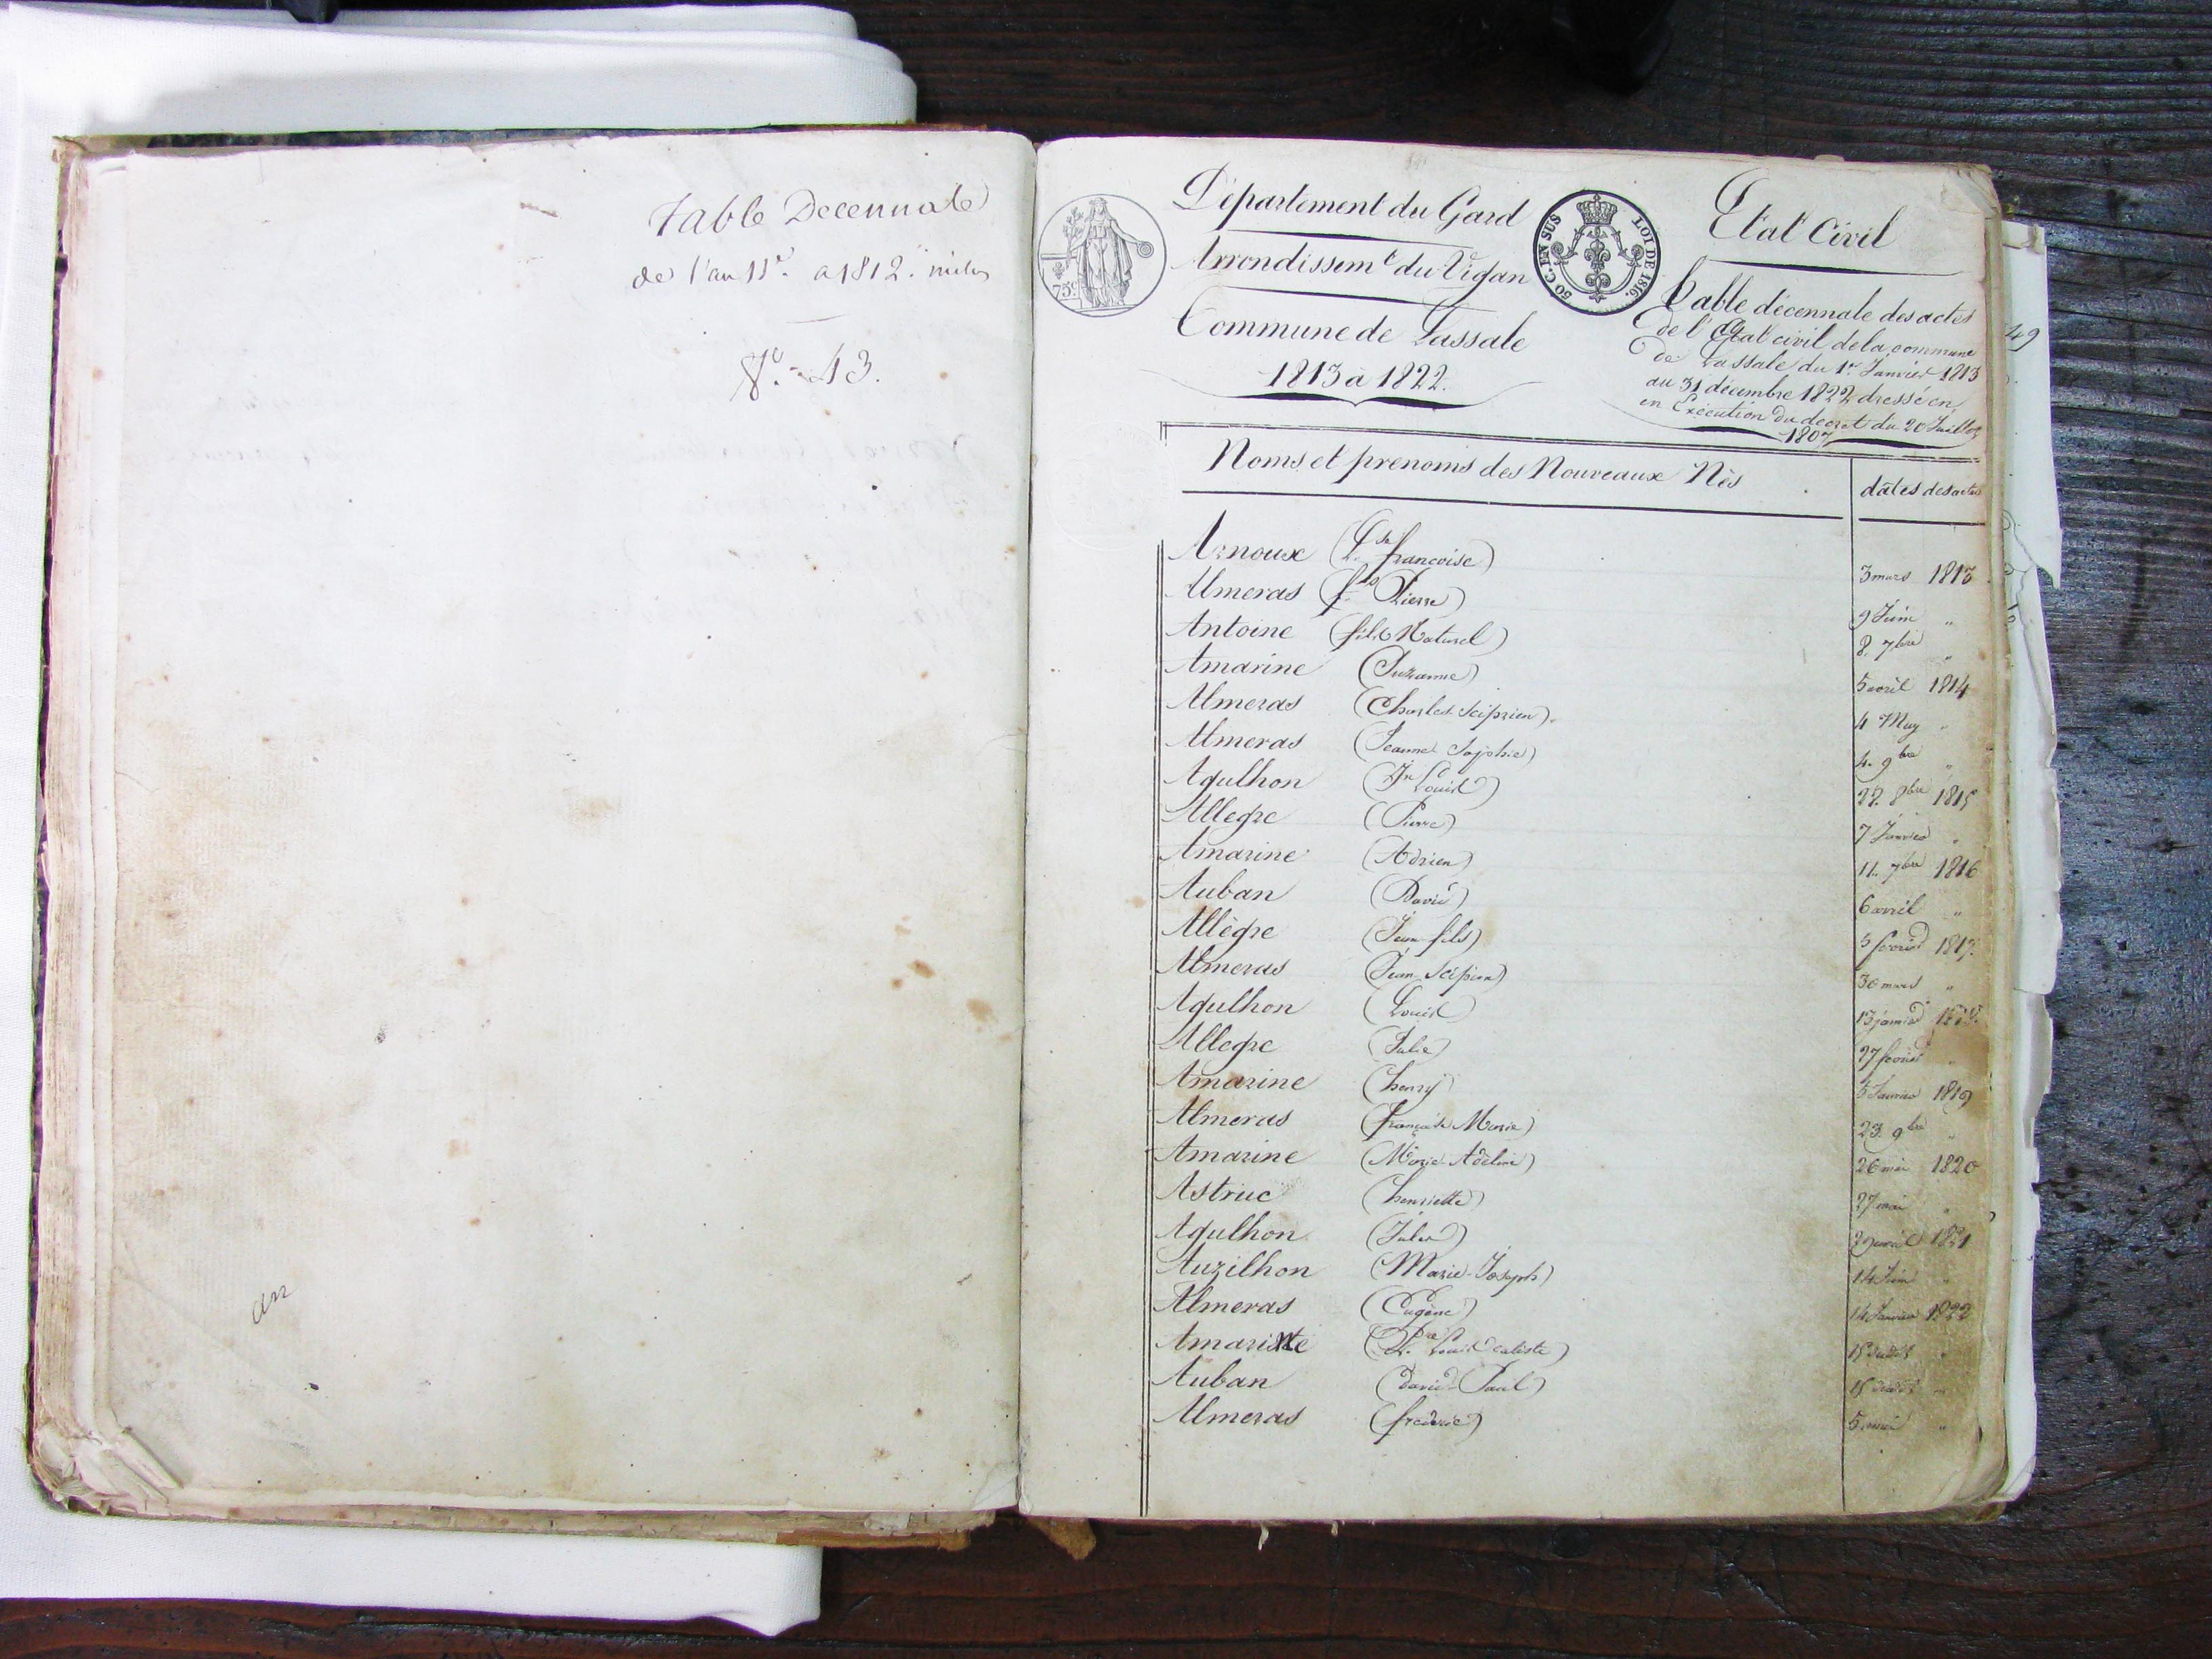 Table Decennale
de l'an 11e. a 1812.
43.
an
Département du Gard
Arrondissemt du Vigan
Commune de Lassale
1813 à 1822.
75c
50 C. EN SUS
LOI DE 1816.
Etat Civil
Table décennale des actes
de l'Etat civil de la commune
de Lassale du 1er Janvier 1813
au 31 décembre 1822 dressé en
en Exécution du decret du 20 Juillet
1807
Noms et prenoms des Nouveaux Nés dates des actes
Arnoux (Lse francoise) 3 mars 1813
Almeras (fs Pierre) 9 Juin "
Antoine (fils Naturel) 8. 7bre "
Amarine (Suzanne) 5 avril 1814
Almeras (Charles Sciprien) 4 May "
Almeras (Jeanne Sophie) 4. 9bre "
Agulhon (Jn Ls Louis) 22. 8bre 1815
Allegre (Pierre) 7 Janvier "
Amarine (Adrien) 11. 7bre 1816
Auban (David) 6 avril "
Allègre (Jean fils) 5 fevrier 1817.
Almeras (Jean Scipion) 30 mars "
Agulhon (Louis) 13 janvier 1818.
Allegre (Julie) 27 fevrier "
Amarine (henry) 5 Janvier 1819
Almeras (françoise Marie) 23. 9bre "
Amarine (Marie Adeline) 26 mai 1820
Astruc (henriette) 27 mai "
Agulhon (Jules) 29 avril 1821
Auzilhon (Marie-Joseph) 14 Juin "
Almeras (Eugène) 14 Janvier 1822
Amarine (Pre Louis Caliste) 15 dudit "
Auban (david Paul) 15 dudit "
Almeras (frederic) 5 mai "
49